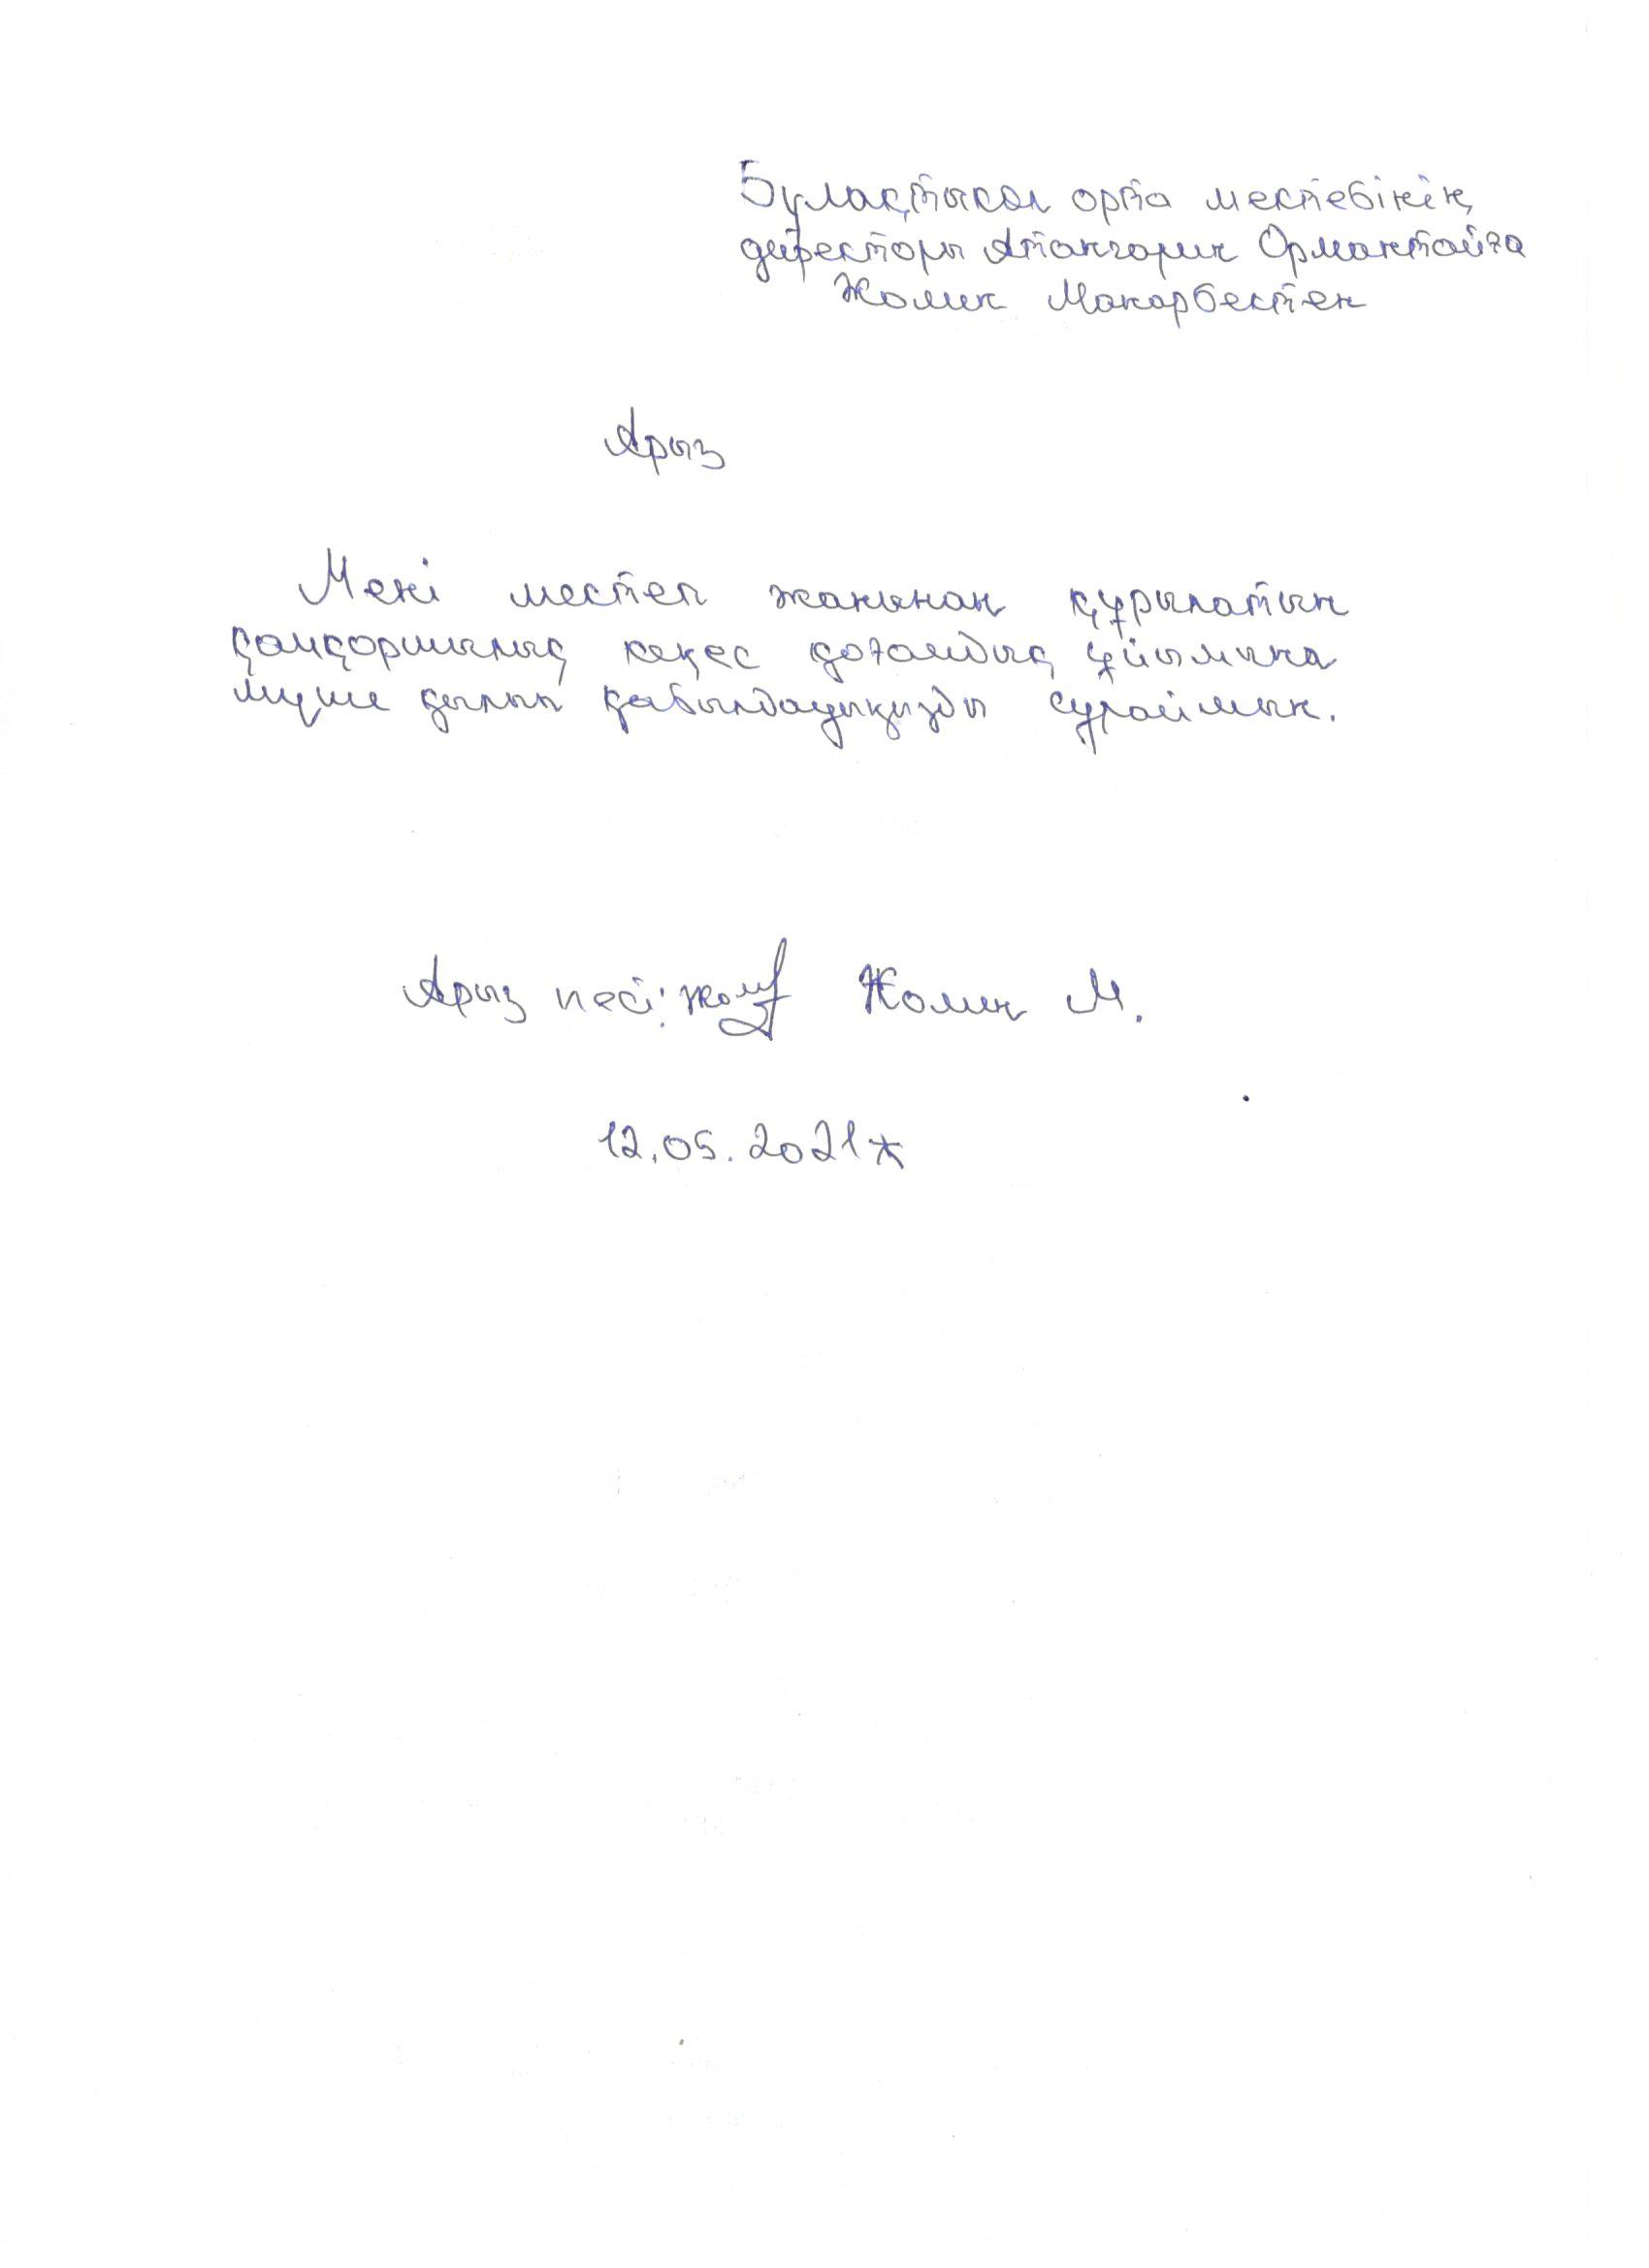 Бұлақтыкөл орта мектебінің
директоры Атангарин Ормантайға
Жомин Макарбектен
Арыз
Мені мектеп жанынан құрылатын
қамқоршылық кеңес қоғамдық ұйымына
мүше қылып қабылдауыңызды сұраймын.
Арыз иесі: Жомин М.
12.05.2021ж